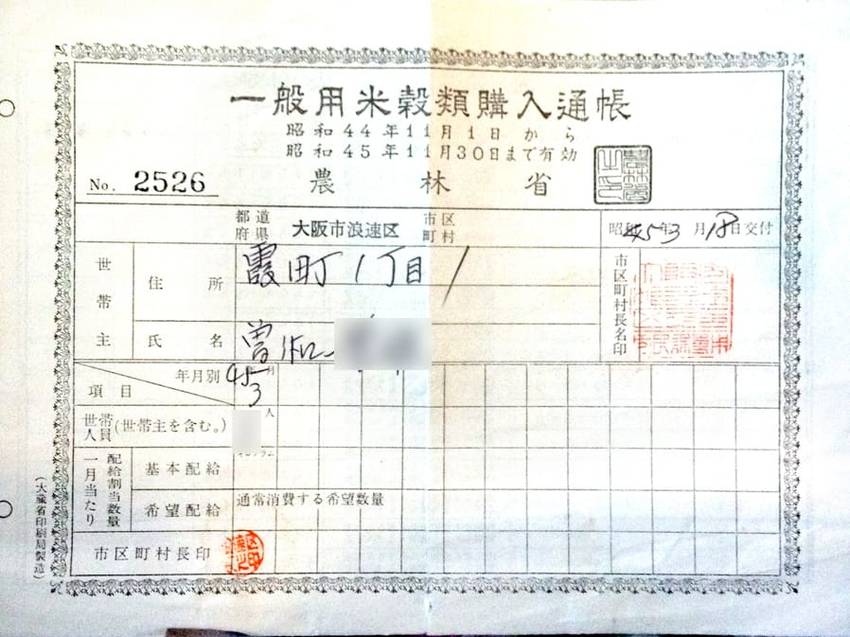 一般用米穀類購入通帳
昭和44年11月1日から
昭和45年11月30日まで有効
No. 2526
農林省
都道府県 大阪市浪速区 市区町村
昭和45年3月18日交付
世帯主
住所
霞町1丁目1
市区町村長名印
氏名
曽和
年月別
45 3 月
項目
世帯人員(世帯主を含む。)
人
配給割当数量一月当たり
基本配給
キログラム
希望配給
通常消費する希望数量
市区町村長印
(大蔵省印刷局製造)